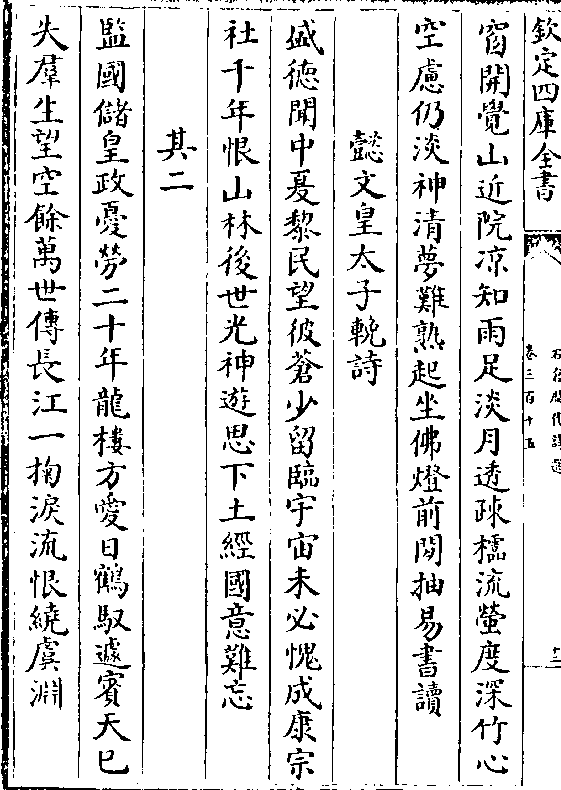 欽定四庫全書
石倉歷代詩選
卷三百十五
十二
窗開覺山近院凉知雨足淡月透疎櫺流螢度深竹心
空慮仍淡神清夢難熟起坐佛燈前閒抽易書讀
懿文皇太子輓詩
盛徳聞中夏黎民望彼蒼少留臨宇宙未必愧成康宗
社千年恨山林後世光神遊思下土經國意難忘
其二
監國儲皇政憂勞二十年龍樓方愛日鶴馭遽賓天已
失羣生望空餘萬世傳長江一掬淚流恨繞虞淵